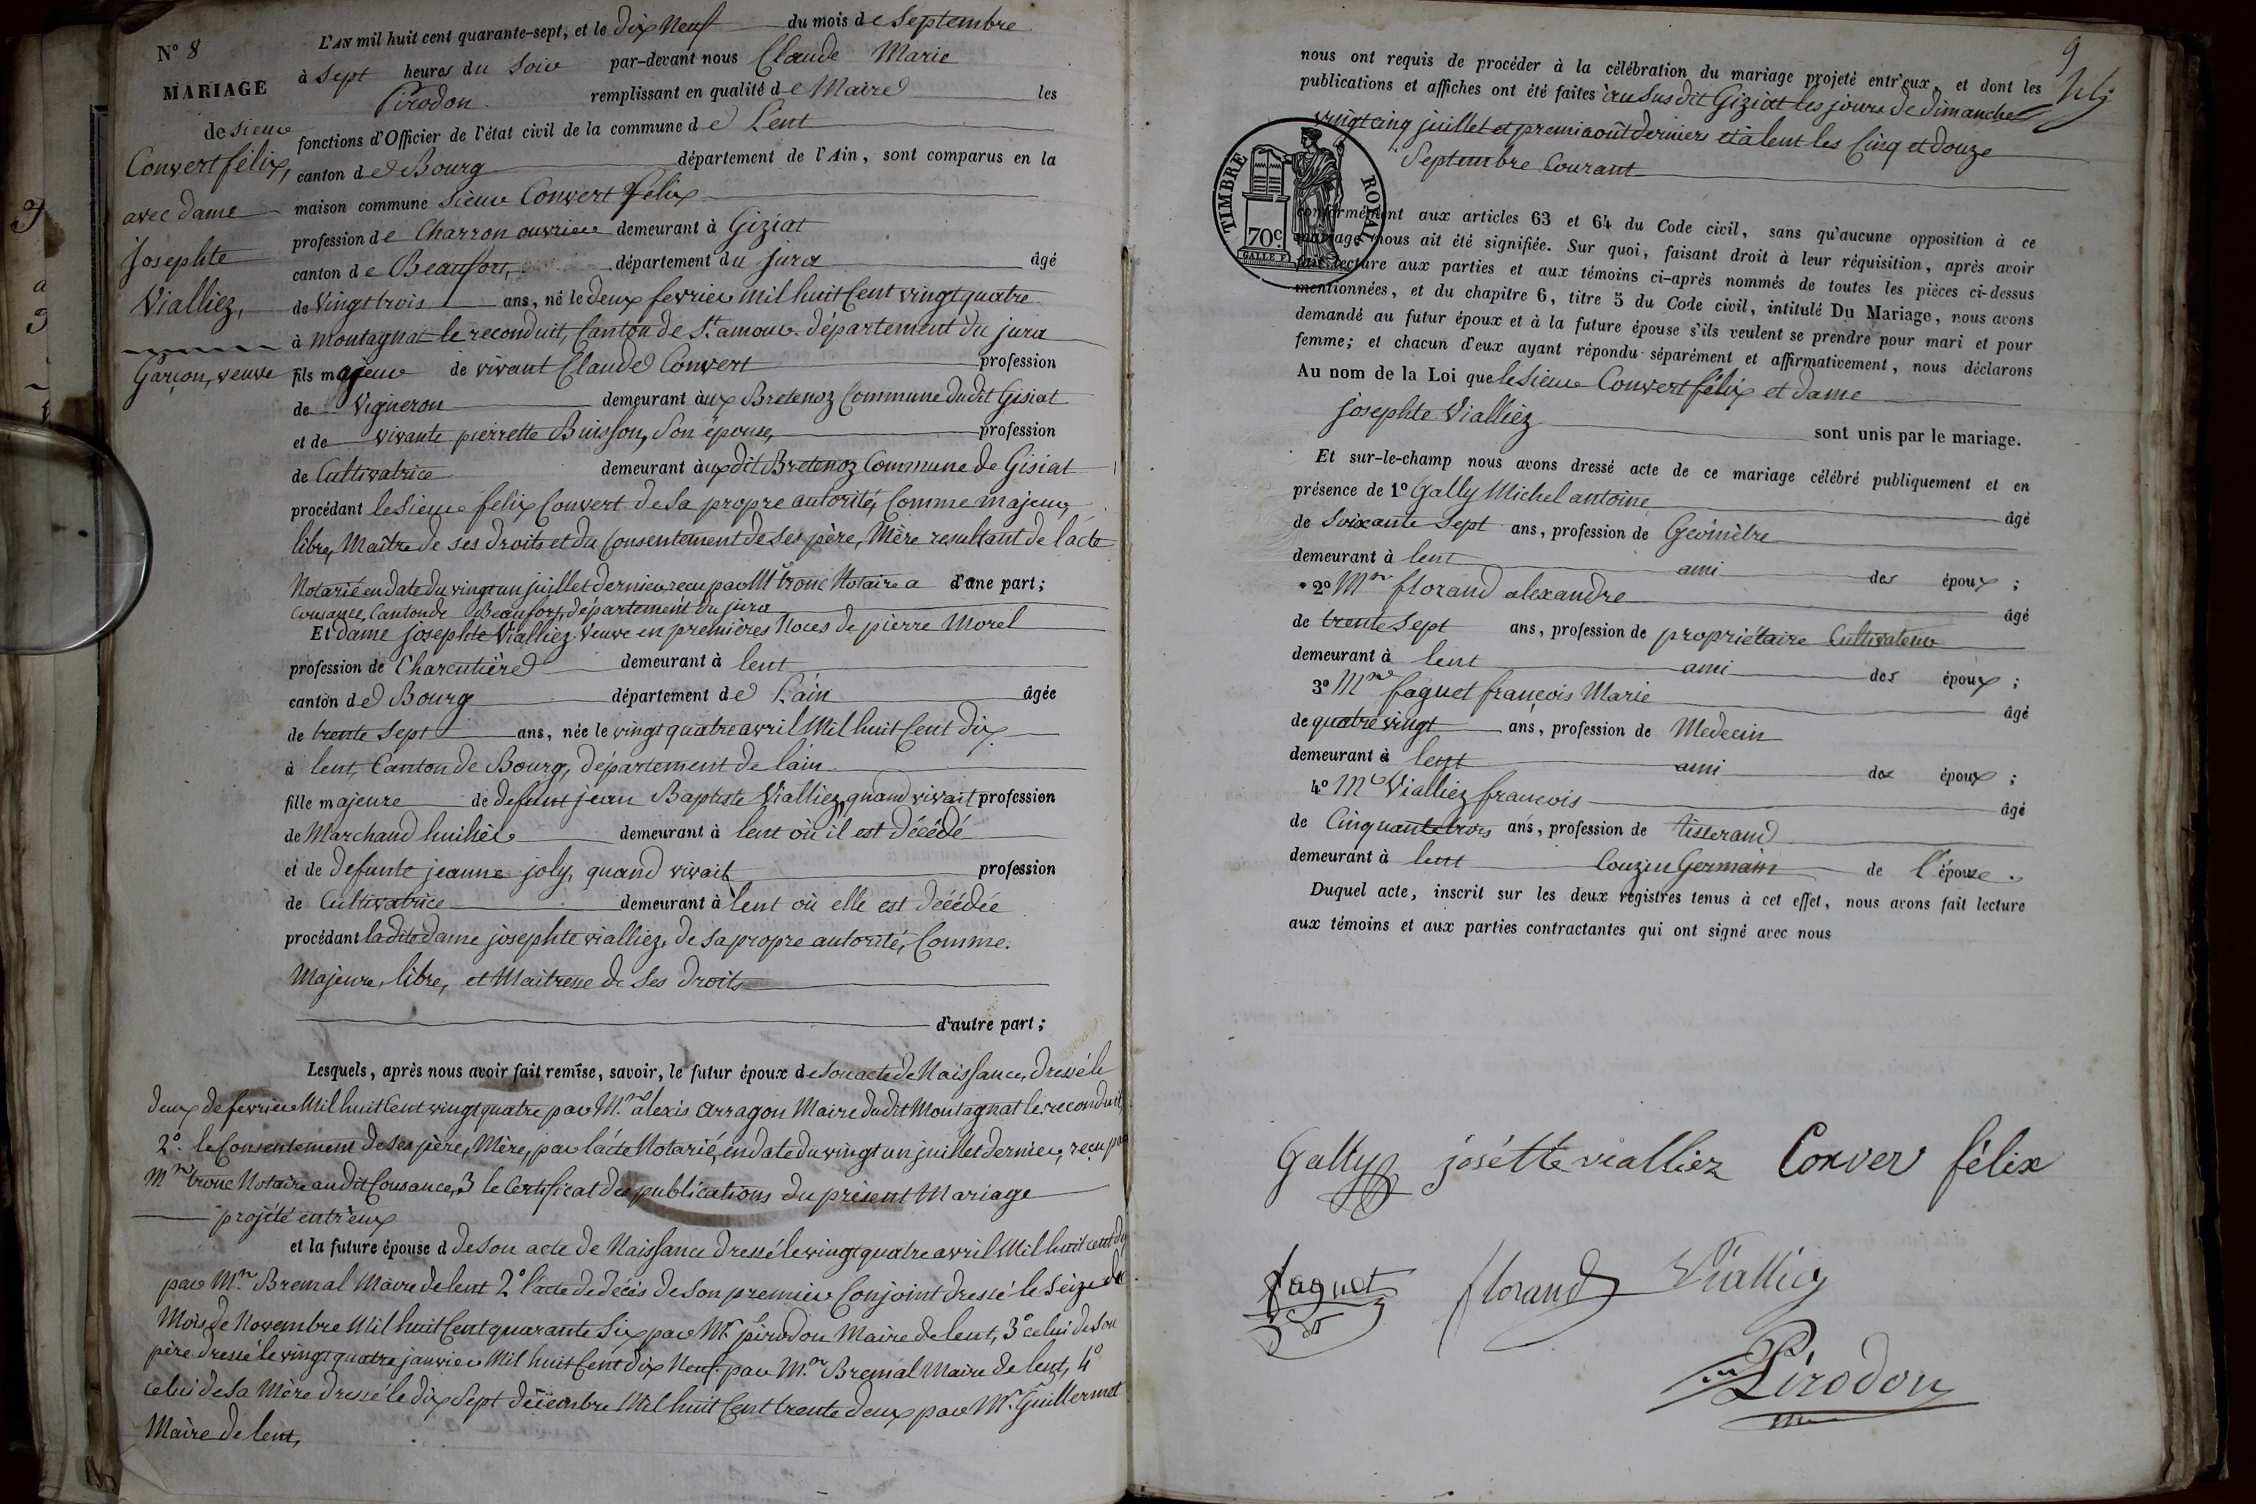 N° 8
MARIAGE
de sieur
Convert félix,
avec dame
Josephte
Vialliez,
Garçon, veuve
L'AN mil huit cent quarante-sept, et le dix Neuf du mois de Septembre
à sept heures du soir par-devant nous Claude Marie
Pirodon remplissant en qualité de Maire les
fonctions d'Officier de l'état civil de la commune de Lent
canton de Bourg département de l'Ain, sont comparus en la
maison commune sieur Convert félix
profession de Charron ouvrier demeurant à Giziat
canton de Beaufort, département du jura âgé
de Vingt trois ans, né le deux fevrier mil huit Cent vingt quatre
à montagnat le reconduit, Canton de St. amour département du jura
fils majeur de vivant Claude Convert profession
de Vigneron demeurant aux Bretenoz Commune dudit Gisiat
et de vivante pierrette Buisson, son épouse, profession
de Cultivatrice demeurant auxdit Bretenoz Commune de Gisiat
procédant le sieur felix Convert de sa propre autorité, Comme majeur,
libre, Maître de ses droits et du Consentement de ses père, Mère resultant de l'acte
Notarié en date du vingt un juillet dernier, recu par Mr. tronc Notaire a d'une part;
Cousance, Canton de Beaufort, département du jura
Et dame josephte Vialliez Veuve en premières Noces de pierre Morel
profession de Charcutière demeurant à lent
canton de Bourg département de l'ain âgée
de trente sept ans, née le vingt quatre avril Mil huit Cent dix
à lent, Canton de Bourg, département de l'ain
fille majeure de defunt jean Baptiste Vialliez, quand vivait profession
de Marchand huilier demeurant à lent où il est décédé
et de defunte jeanne joly, quand vivait profession
de Cultivatrice demeurant à lent où elle est décédée
procédant ladite dame josephte vialliez, de sa propre autorité, Comme
Majeure, libre, et Maitresse de ses droits
d'autre part;
Lesquels, après nous avoir fait remise, savoir, le futur époux de son acte de Naissance, dressé le
deux de fevrier Mil huit Cent vingt quatre par Mr. alexis arragon Maire dudit Montagnat le reconduit,
2° le Consentement de ses père, Mère, par l'acte Notarié, en date du vingt un juillet dernier, reçu par
Mr. tronc Notaire audit Cousance, 3 le Certificat des publications du présent Mariage
projété entr'eux
et la future épouse d de son acte de Naissance dressé le vingt quatre avril Mil huit cent dix
par Mr. Bremal Maire de lent 2° l'acte de décès de son premier Conjoint dressé le seize du
Mois de Novembre Mil huit Cent quarante six par Mr. pirodon Maire de lent, 3° celui de son
père dressé le vingt quatre janvier Mil huit Cent dix Neuf par Mr. Bremal Maire de lent, 4°
celui de sa Mère dressé le dix sept décembre Mil huit Cent trente deux par Mr. Guillermet
Maire de lent,
9
nous ont requis de procéder à la célébration du mariage projeté entr'eux, et dont les
publications et affiches ont été faites au susdit Giziat les jours de dimanche
vingt cinq juillet et premier août derniers et à lent les Cinq et douze
Septembre Courant
TIMBRE ROYAL
70c.
conformément aux articles 63 et 64 du Code civil, sans qu'aucune opposition à ce
mariage nous ait été signifiée. Sur quoi, faisant droit à leur réquisition, après avoir
fait lecture aux parties et aux témoins ci-après nommés de toutes les pièces ci-dessus
mentionnées, et du chapitre 6, titre 5 du Code civil, intitulé Du Mariage, nous avons
demandé au futur époux et à la future épouse s'ils veulent se prendre pour mari et pour
femme; et chacun d'eux ayant répondu séparément et affirmativement, nous déclarons
Au nom de la Loi que le sieur Convert félix et dame
josephte Vialliez sont unis par le mariage.
Et sur-le-champ nous avons dressé acte de ce mariage célébré publiquement et en
présence de 1° Gally Michel antoine âgé
de soixante sept ans, profession de Géomètre
demeurant à lent ami des époux;
2° Mr florand alexandre âgé
de trente sept ans, profession de propriétaire Cultivateur
demeurant à lent ami des époux;
3° Mr faguet françois Marie âgé
de quatre vingt ans, profession de Medecin
demeurant à lent ami des époux;
4° Mr Vialliez françois âgé
de Cinquante trois ans, profession de tisserand
demeurant à lent Couzin Germain de l'épouse.
Duquel acte, inscrit sur les deux registres tenus à cet effet, nous avons fait lecture
aux témoins et aux parties contractantes qui ont signé avec nous
Gally josétte vialliez Conver félix
faguet florand Viallier
Pirodon